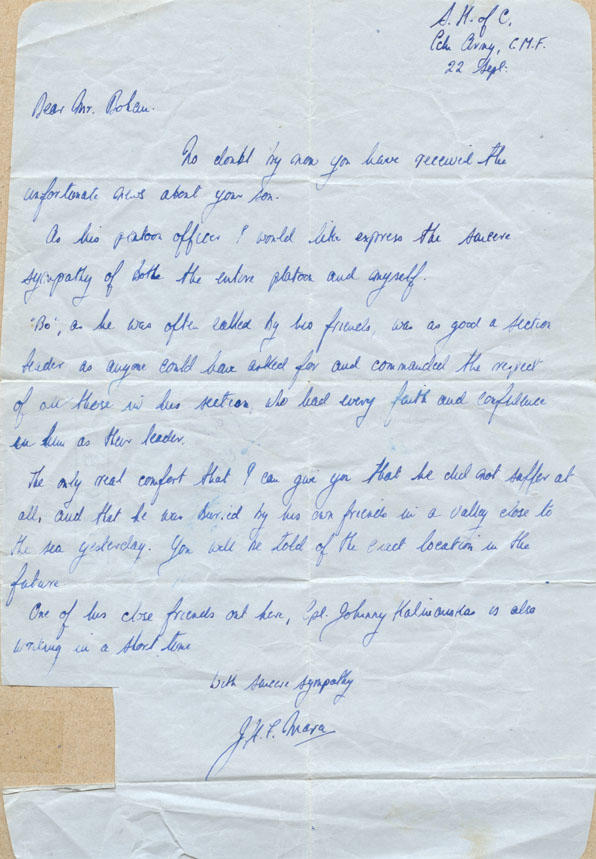 S. H. of C.
Cdn Army, C.M.F.
22 Sept.
Dear Mr. Rohan.
No doubt by now you have received the
unfortunate news about your son.
As his platoon officer I would like express the sincere
sympathy of both the entire platoon and myself.
"Bo", as he was often called by his friends, was as good a section
leader as anyone could have asked for and commanded the respect
of all those in his section, who had every faith and confidence
in him as their leader.
The only real comfort that I can give you that he did not suffer at
all, and that he was buried by his own friends in a valley close to
the sea yesterday. You will be told of the exact location in the
future
One of his close friends out here, Cpl. Johnny is also
writing in a short time
With sincere sympathy
Mara